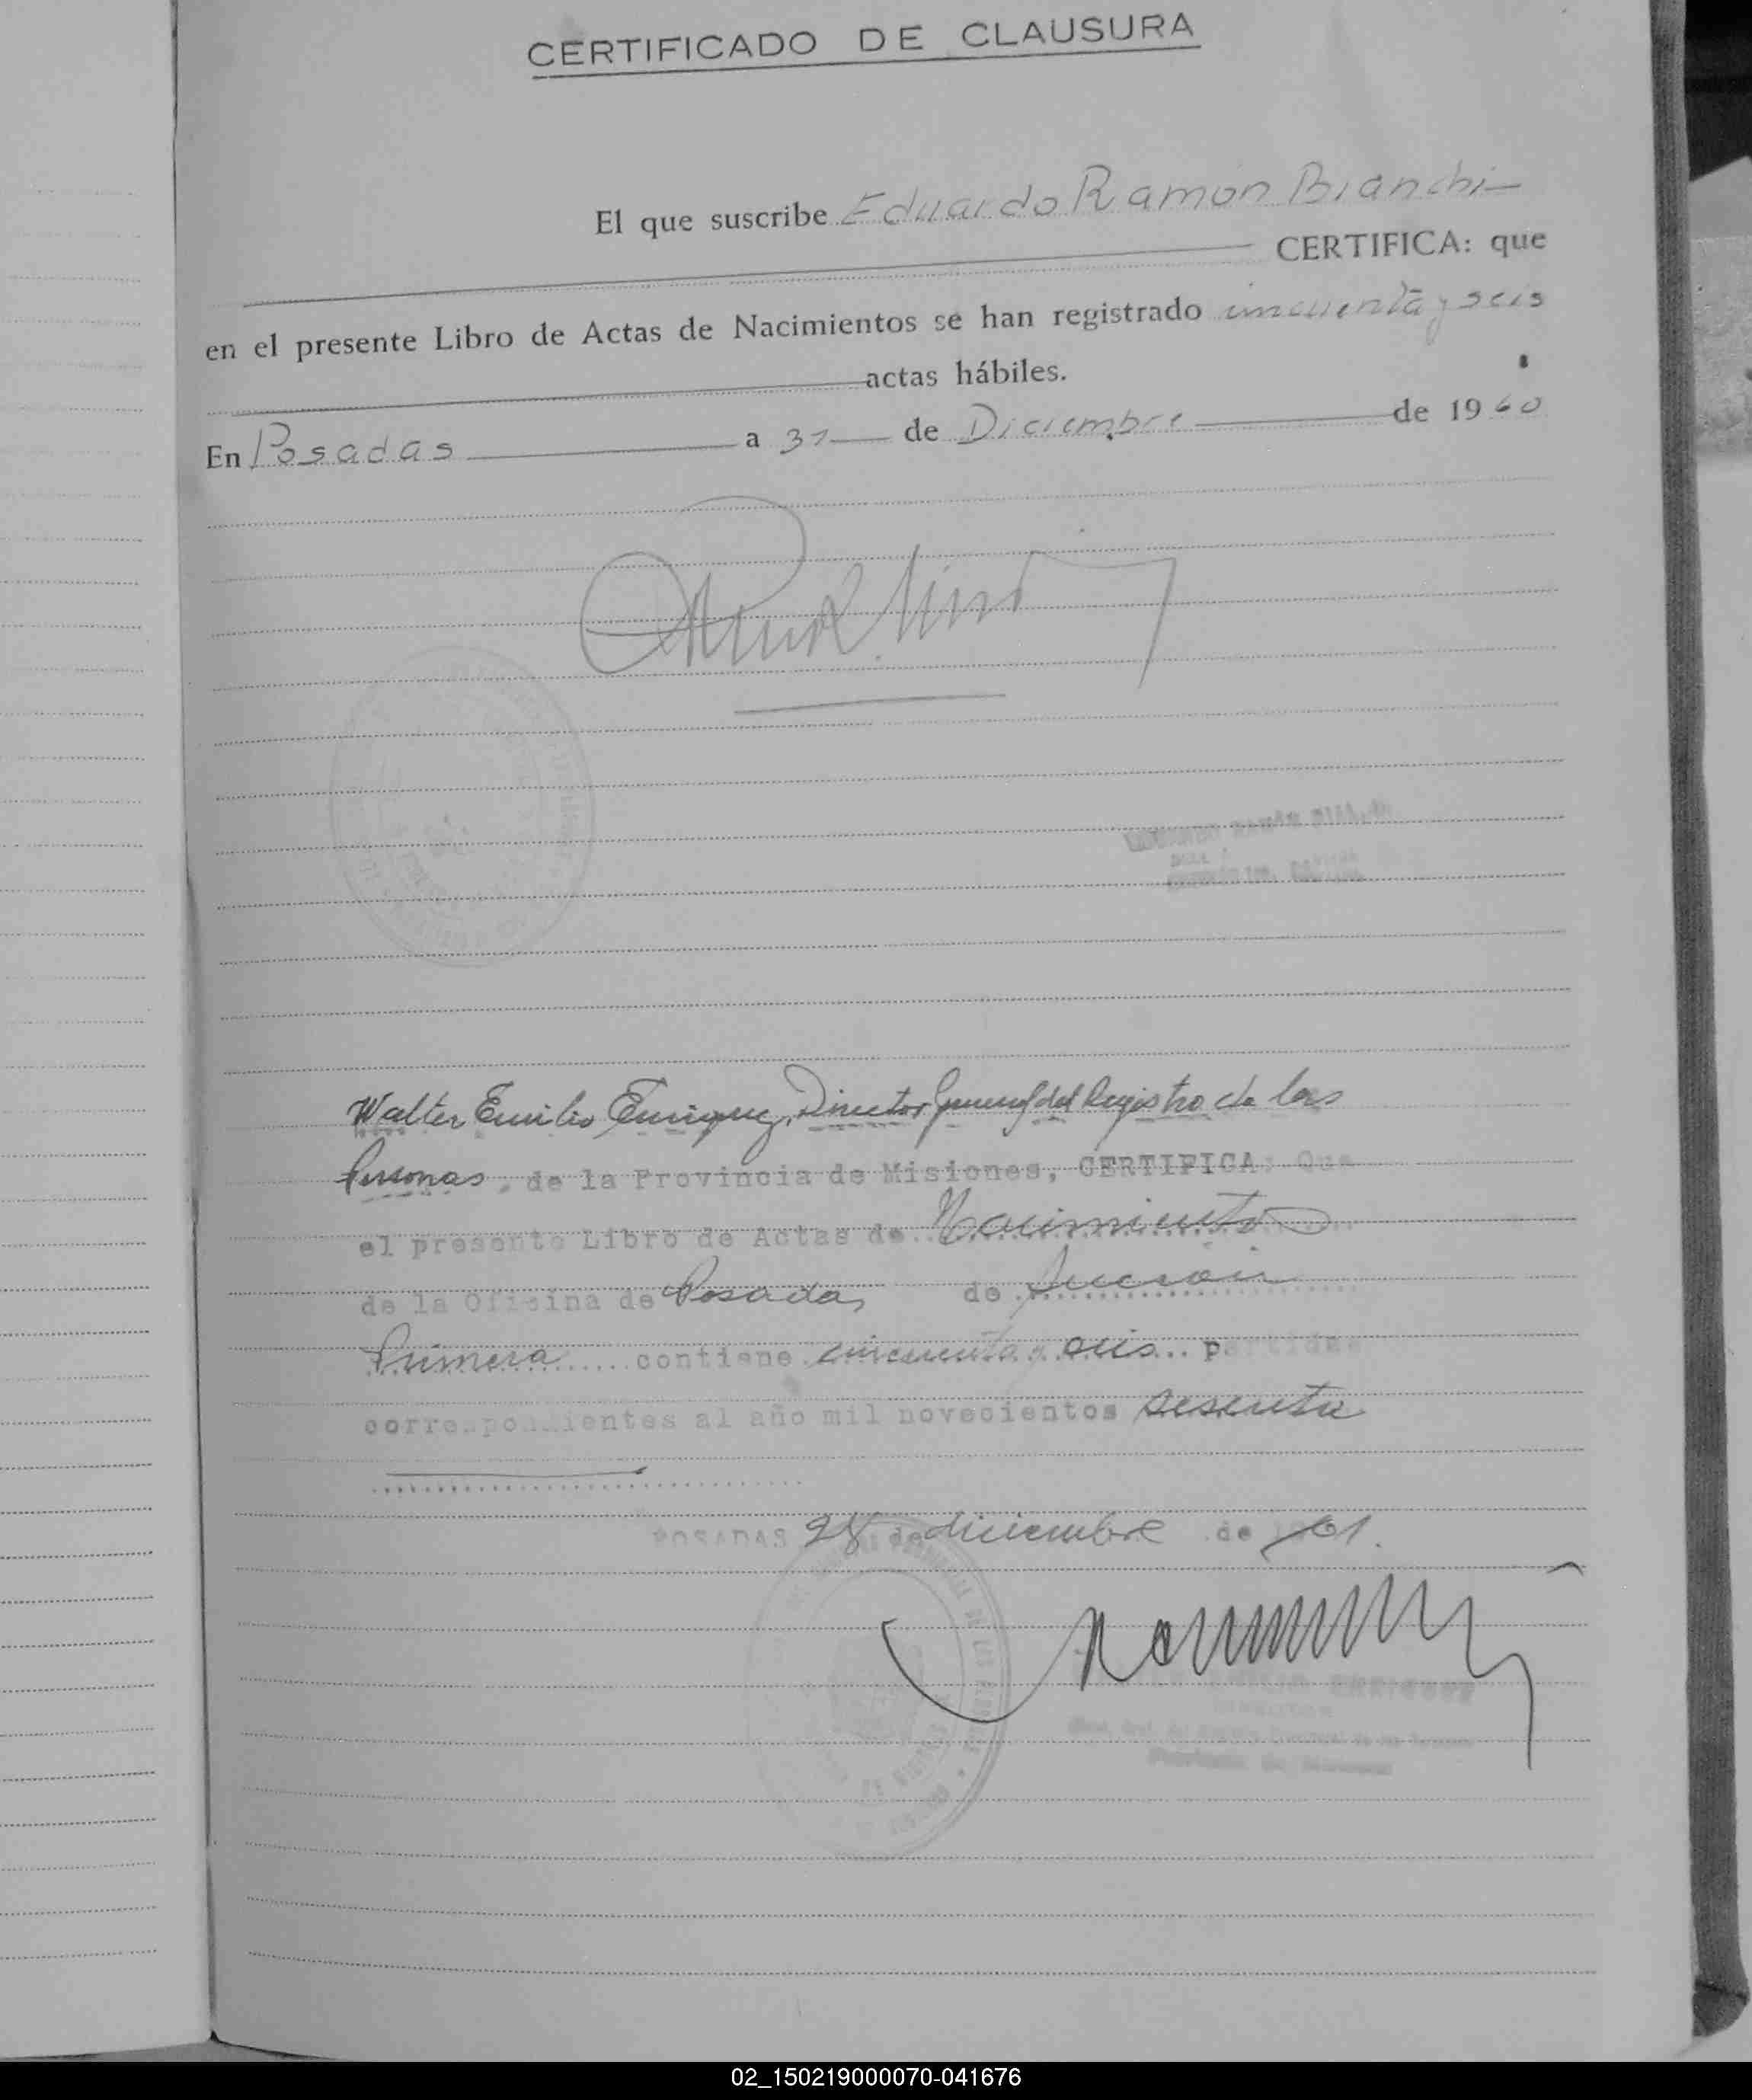 CERTIFICADO DE CLAUSURA
El que suscribe Eduardo Ramón Bianchi
CERTIFICA: que
en el presente Libro de Actas de Nacimientos se han registrado cincuenta y seis
actas hábiles.
En Posadas a 31 de Diciembre de 1960
Walter Emilio Enriquez, Director General del Registro de las
Personas, de la Provincia de Misiones, CERTIFICA: Que
el presente Libro de Actas de Nacimiento
de la Oficina de Posadas de Sección
Primera contiene cincuenta y seis partidas
correspondientes al año mil novecientos sesenta
POSADAS 28 de diciembre de 1961.
02_150219000070-041676